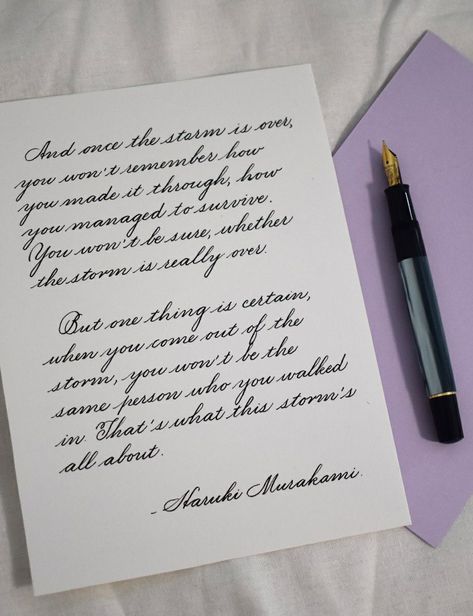 And once the storm is over,
you won't remember how
you made it through, how
you managed to survive.
You won't be sure, whether
the storm is really over.
But one thing is certain,
when you come out of the
storm, you won't be the
same person who you walked
in. That's what this storm's
all about.
- Haruki Murakami.